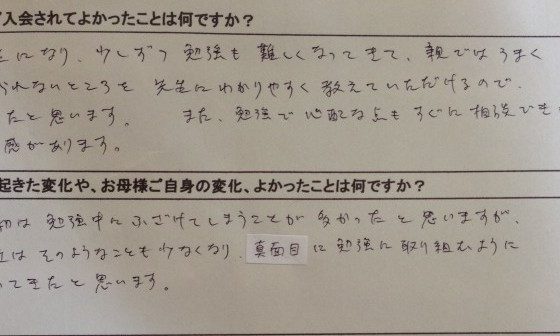 ご入会されてよかったことは何ですか？
生になり、少しずつ勉強も難しくなってきて、親ではうまく
られないところを先生にわかりやすく教えていただけるので、
たと思います。 また、勉強で心配な点もすぐに相談でき
感があります。
起きた変化や、お母様ご自身の変化、よかったことは何ですか？
初は勉強中にふざけてしまうことが多かったと思いますが、
はそのようなことも少なくなり、真面目に勉強に取り組むように
ってきたと思います。